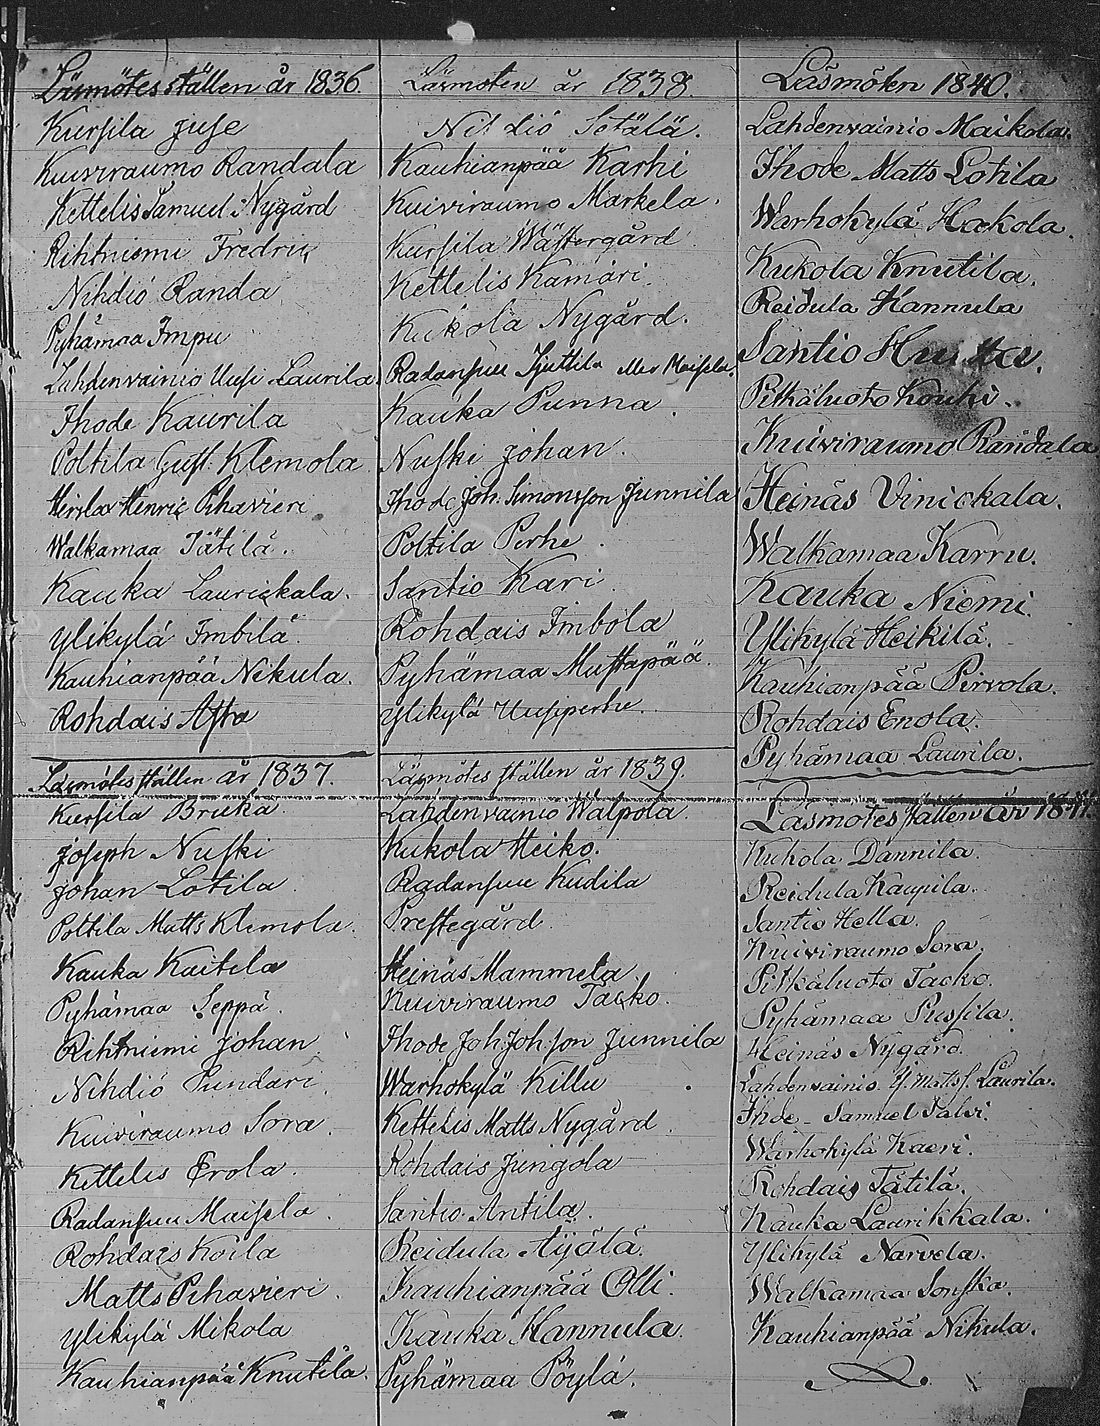 Läsmötes ställen år 1836.
Kursila Juse
Kuiviraumo Randala
Kettelis Samuel Nygård
Rihtniemi Fredric
Nihdiö Randa
Pyhämaa Impu
Lahdenvainio Uusi Laurila
Ihode Kaurila
Poltila Gust. Klemola
Heinlax Henric Pihavieri
Walkamaa Tätilä.
Kauka Laurickala.
Ylikylä Imbilä.
Kauhianpää Nikula.
Rohdais
Läsmötes ställen år 1837.
Kursila Bruka
Joseph Nuski
Johan Lotila
Poltila Matts Klemola.
Kauka Kaitila
Pyhämaa Seppä.
Rihtniemi Johan
Nihdiö Pundari
Kuiviraumo Sora.
Kettelis Erola.
Radansuu Maisela.
Rohdais Koila
Matts Pihavieri.
Ylikylä Mikola
Kauhianpää Knutila.
Läsmöten år 1838.
Nihdiö Setälä.
Kauhianpää Karhi
Kuiviraumo Markela.
Kursila Wästergård
Kettelis Kamari.
Kukola Nygård.
Radansuu Maisela.
Kauka Punna.
Nuski Johan.
Ihode Joh. Simonsson Junnila
Poltila Perhe.
Santio Kari
Rohdais Imbola
Pyhämaa Mustapää.
Ylikylä Uusiperhe.
Läsmötes ställen år 1839.
Lahdenvainio Walpola.
Kukola Heiko.
Radansuu Kudila
Prestegård
Heinäs Mammela
Kuiviraumo Tacko.
Ihode Joh Johsson Junnila
Warhokylä Killu
Kettelis Matts Nygård.
Rohdais Jungola
Santio Antila.
Reidula Äijälä.
Kauhianpää Olli.
Kauka Hannula.
Pyhämaa Pöylä.
Läsmöten 1840.
Lahdenvainio Maikola.
Ihode Matts Lotila
Warhokylä Hakola.
Kukola Knutila.
Reidula Hannula
Santio
Pitkäluoto Kouki.
Kuiviraumo Randala
Heinäs Vinickala.
Walkamaa Karru.
Kauka Niemi
Ylikylä Heikilä.
Kauhianpää Pirvola.
Rohdais Enola.
Pyhämaa Laurila.
Läsmötes ställen år 1841.
Kukola Dannila.
Reidula Kaupila.
Santio Hella.
Kuiviraumo Sora.
Pitkäluoto Tacko.
Pyhämaa Pussila.
Heinäs Nygård.
Lahdenvainio Y. Matts f. Laurila.
Ihde Samuel Salvi.
Warhokylä Kaeri.
Rohdais Tätilä.
Kauka Laurikkala.
Ylikylä Narvela.
Walkamaa Sonkka.
Kauhianpää Nikula.